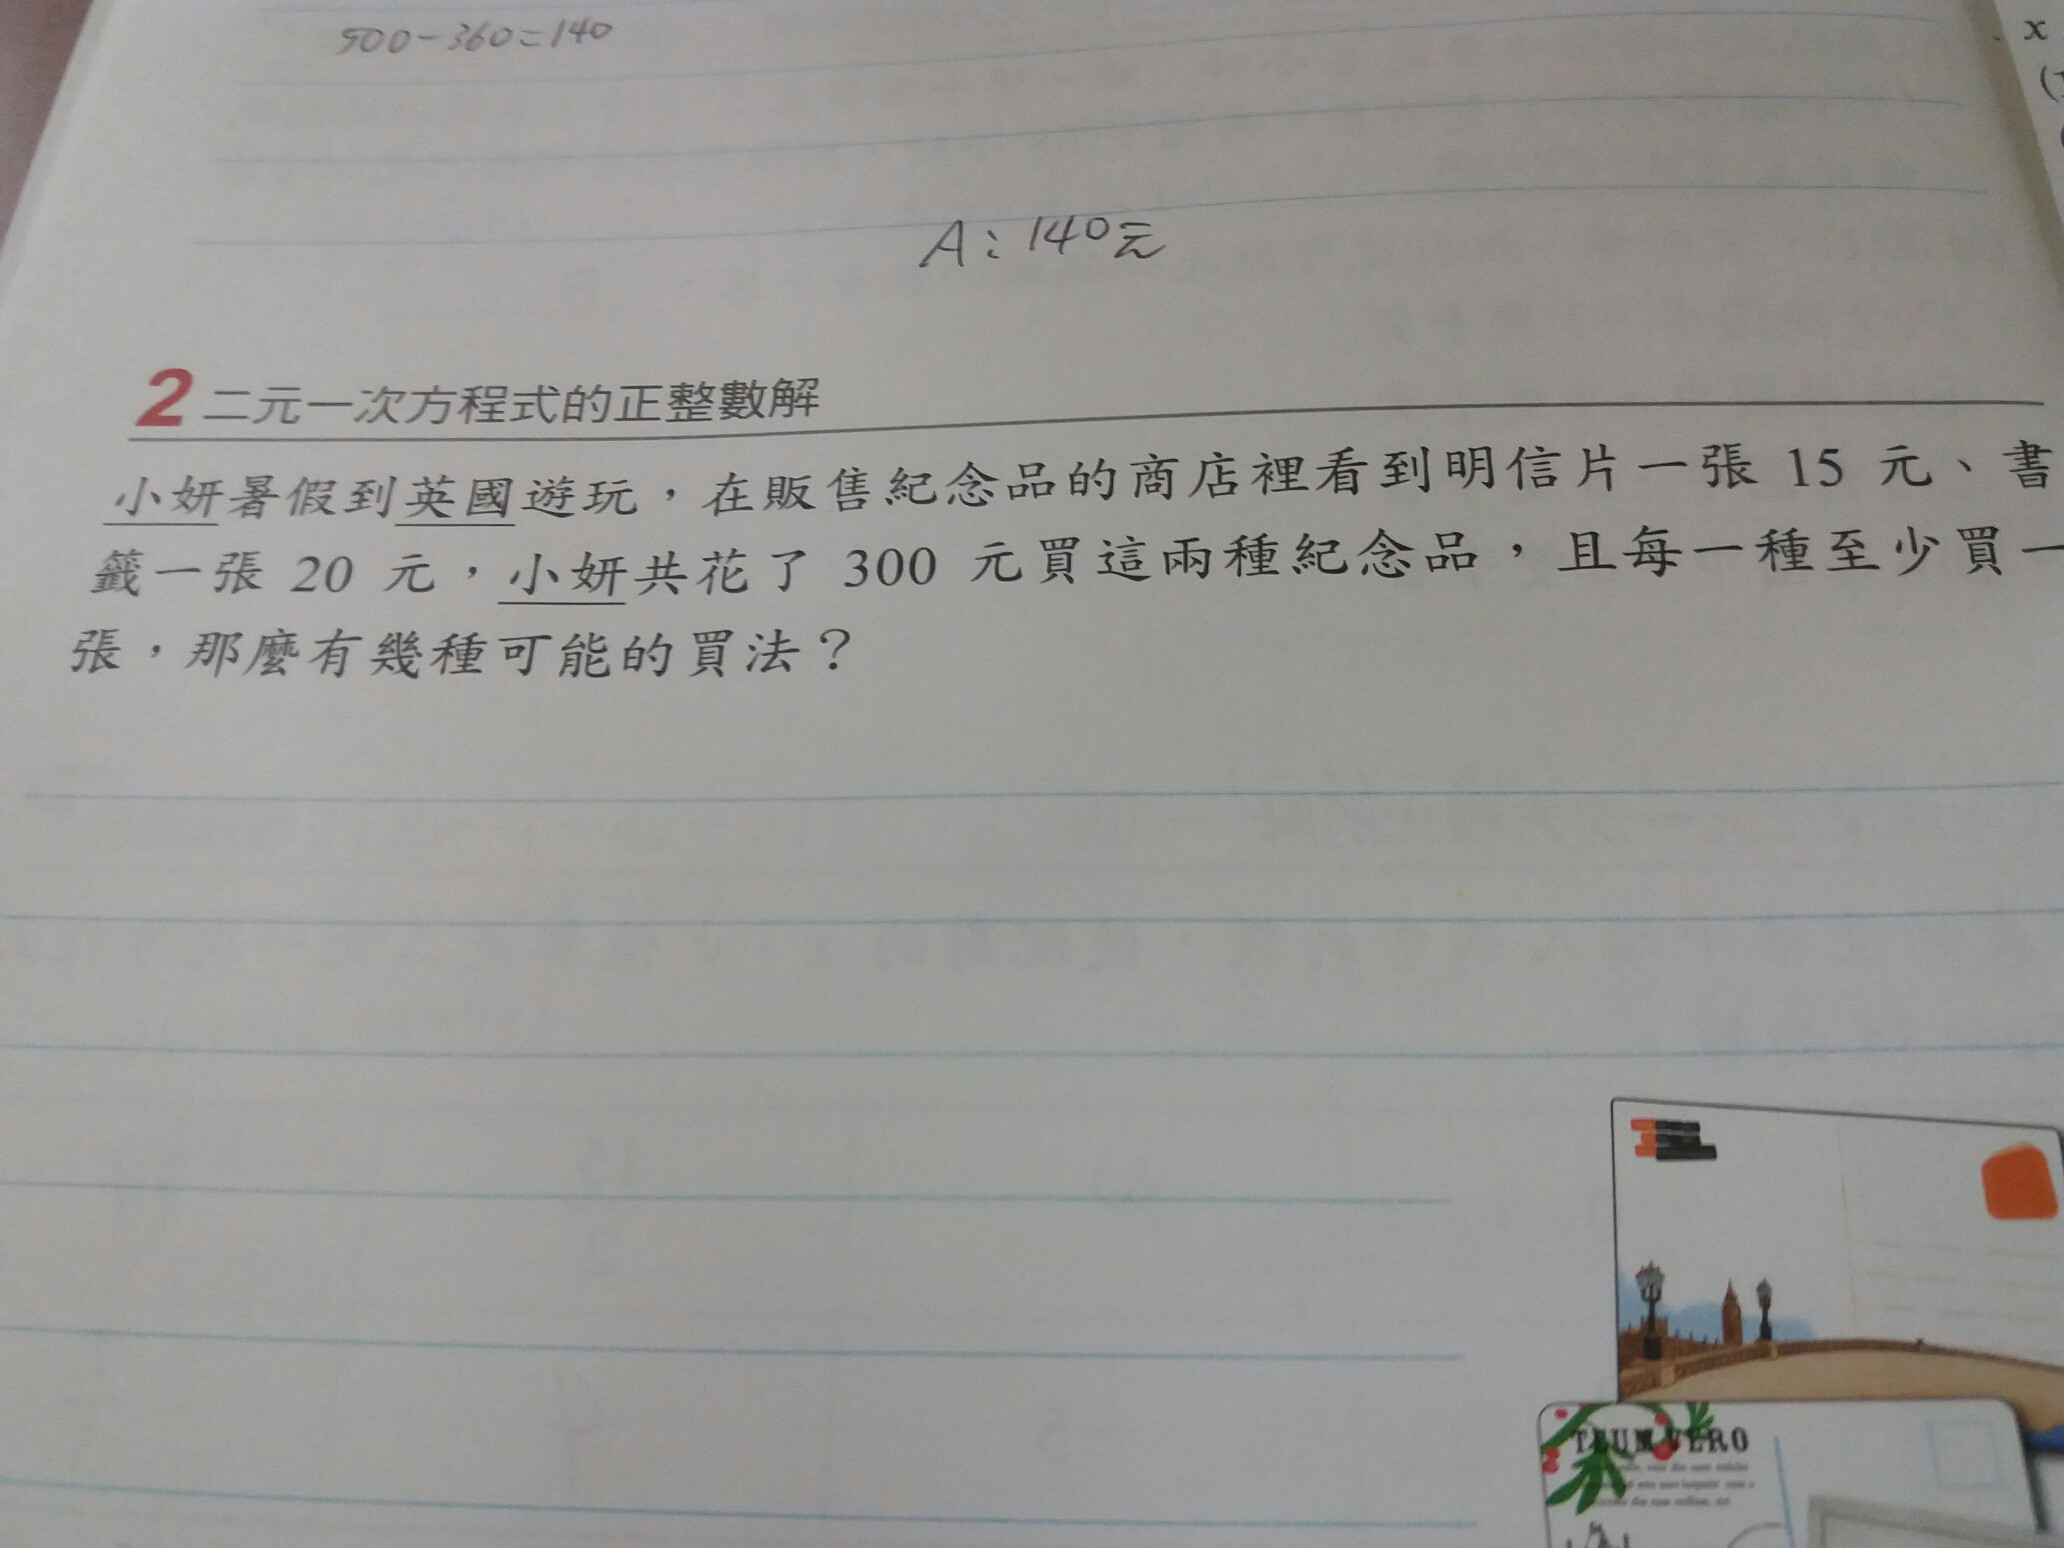 500-360=140
A:140元
x
2 二元一次方程式的正整數解
小妍暑假到英國遊玩，在販售紀念品的商店裡看到明信片一張 15 元、書
籤一張 20 元，小妍共花了 300 元買這兩種紀念品，且每一種至少買一
張，那麼有幾種可能的買法？
TEUM VERO